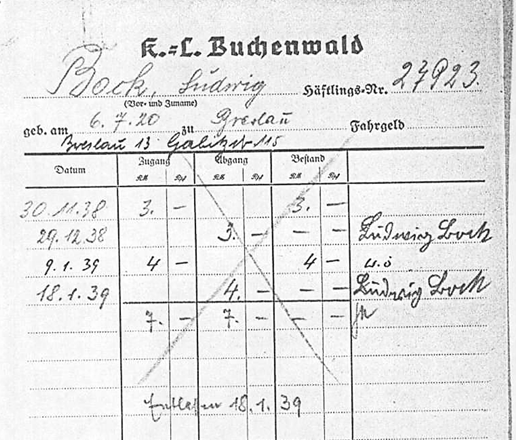 K.=L. Buchenwald
Bock, Ludwig Häftlings-Nr. 27923
(Vor- und Zuname)
geb. am 6.7.20 zu Breslau Fahrgeld
Breslau 13 115
Datum Zugang Abgang Bestand
RM Rpf RM Rpf RM Rpf
30.11.38 3. — 3. —
29.12.38 3. — — — Ludwig Bock
9.1.39 4 — 4 — u.ö
18.1.39 4. — — — Ludwig Bock
7. — 7. — — —
Entlassen 18.1.39